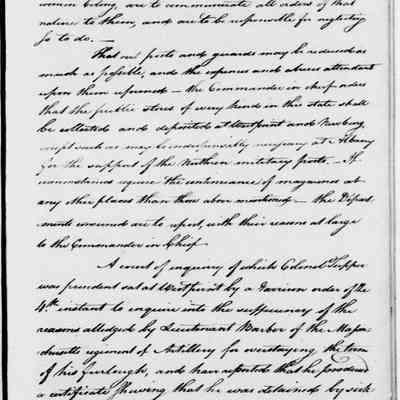 whom belong, are to communicate all orders of that
nature to them, and are to be responsible for neglecting
so to do. —
That our posts and guards may be reduced as
much as possible, and the expences and abuses attendant
upon them reformed — the Commander in chief orders
that the public stores of every kind in this state shall
be collected and deposited at Westpoint and Newburg
except such as may be indispensibly necessary at Albany
for the support of the Northern military posts. — If
circumstances require the continuance of magazines at
any other places than those above mentioned — the Depart
ments concerned are to report, with their reasons at large
to the Commander in Chief.
A court of inquiry of which Colonel Tupper
was president sat at Westpoint by a Garrison order of the
4th instant to enquire into the sufficiency of the
reasons alledged by Lieutenant Barber of the Massa
chusetts regiment of Artillery for overstaying the term
of his furlough, and have reported that he produced
a certificate shewing that he was detained by sick